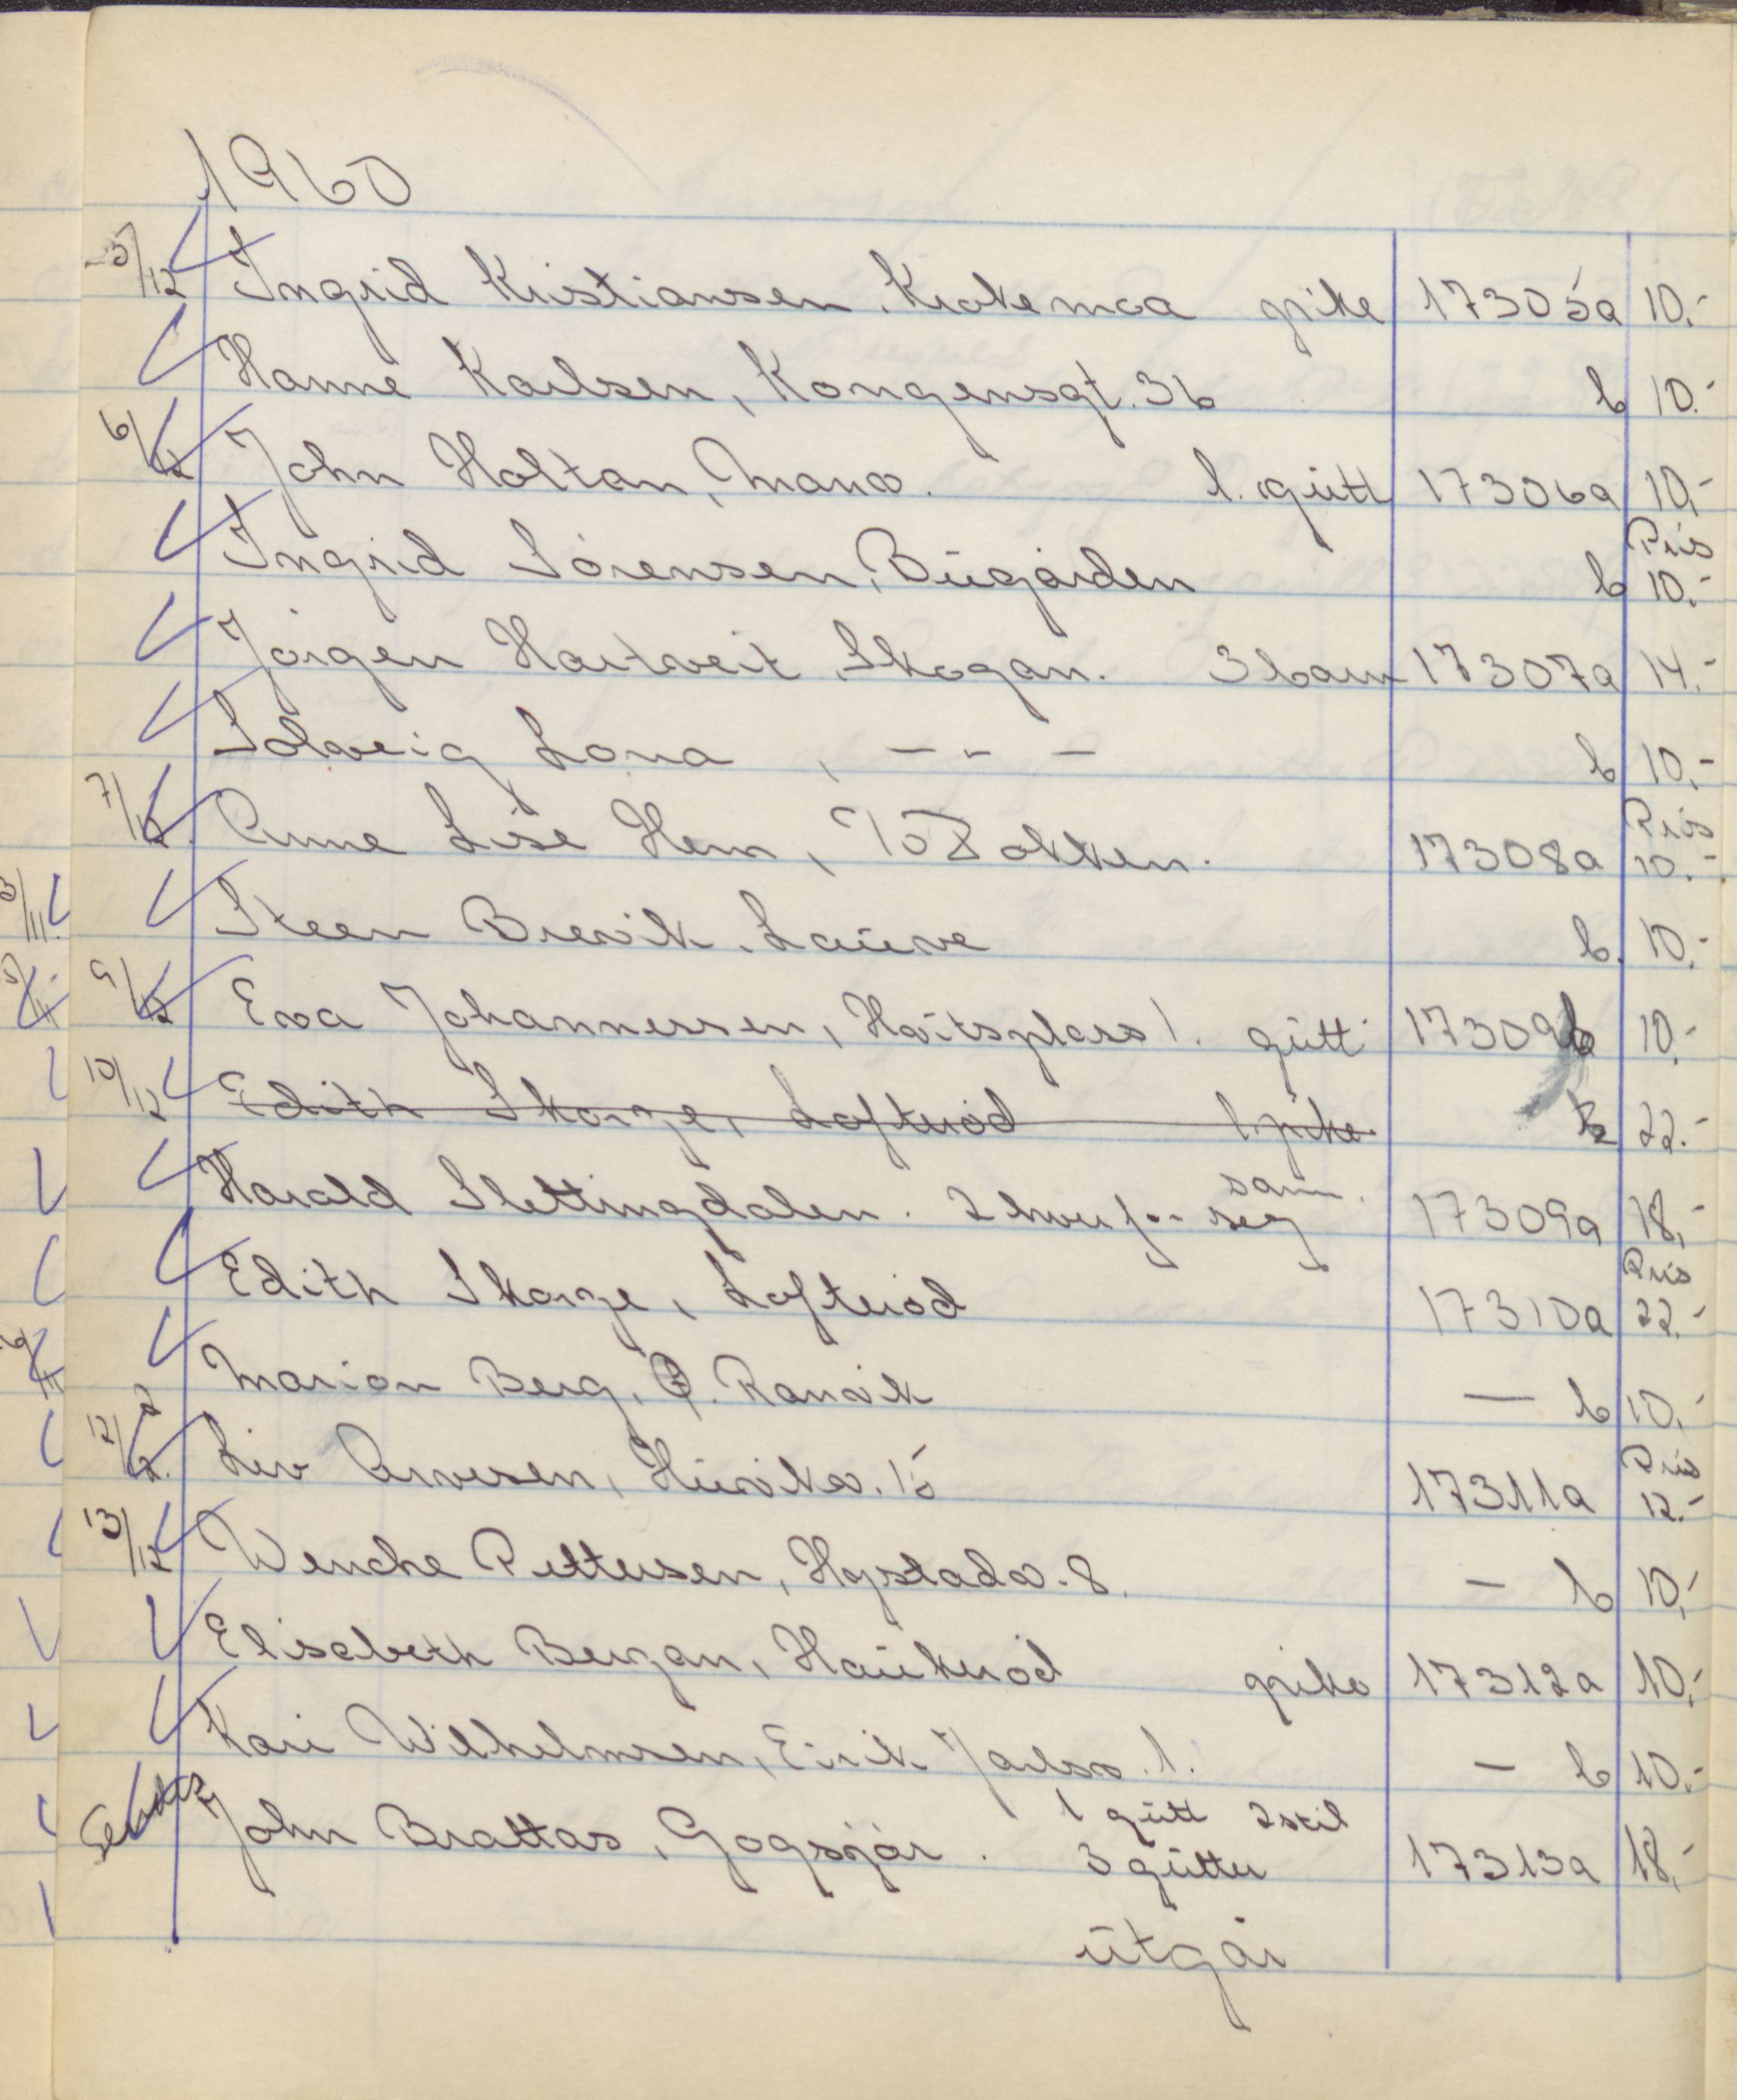 1960
5/12 Ingrid Kristiansen, Krokemoa pike 17305a 10.-
Hanne Karlsen, Kongensgt. 36 b 10.-
6/12 John Holtan, Mosv. l. gutt 17306a 10,-
Ingrid Sørensen, Bugården b Pris 10.-
Jørgen Hartveit, Skogan. 3 barn 17307a 14.-
Solveig Lona , - " - b 10,-
7/12. Anne Lise Hem, 17308a Pris 10.-
Steen Brevik, Lauve b. 10.-
9/12 Eva Johannessen, Hvitsplass 1. gutt 17309b 10,-
10/12 Edith Skorge, Lofterød l. pike b 22.-
Harald Slettingdalen. 2 hver for seg sam. 17309a 18,-
Edith Skorge, Lofterød 17310a Pris 22.-
Marion Berg, Ø. Ranvik — b 10,-
12/12. Liv Arvesen, Huvikv. 15 17311a Pris 12.-
13/12 Wenche Pettersen, Hystadv. 8. — b 10,-
Elisabeth Bergan, Haukerød pike 17312a 10,-
Kari Wilhelmsen, Eirik Jarlsv. 1. — b 10.-
John Brattås, Gogsjør. 1 gutt 2 stil
3 gutter 17313a 18,-
utgår